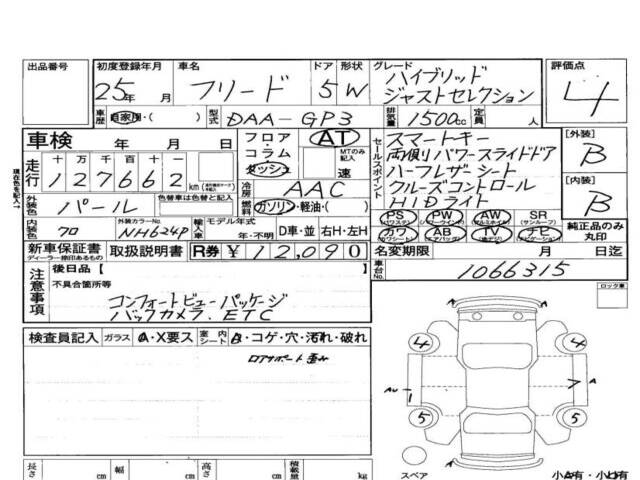 出品番号 初度登録年月 車名 ドア 形状 グレード 評価点
25年 月 フリード 5 W ハイブリッド
ジャストセレクション 4
車歴 自家用・( ) 型式 DAA-GP3 排気量 1500cc 定員 人
車検 年 月 日 フロア・コラム ダッシュ AT MTのみ記入 速
走行 十 万 千 百 十 一
127662 km
冷房 AAC
外装色 パール 色替車は色替と記入 燃料 ガソリン・軽油・( )
内装色 クロ 外装カラーNo. NH624P 輸入車 モデル年式 年・不明 D車・並 右H・左H
新車保証書 ディーラー捺印あるもの 取扱説明書 R券 ¥12,090
現在色を記入↑
セールスポイント
スマートキー
両側パワースライドドア
ハーフレザーシート
クルーズコントロール
HIDライト
PS PW AW SR
(パワステ) (パワーウィンドウ) (アルミホイル) (サンルーフ)
カワ AB TV ナビ
(カワシート) (エアバッグ) (地デジ) (ナビゲーション)
[外装] B
[内装] B
純正品のみ丸印
名変期限 月 日迄
車台No. 1066315
注意事項 後日品【
不具合箇所等
コンフォートビューパッケージ
バックカメラ. ETC
ロック車
検査員記入 ガラス A・X要ス 室内シート B・コゲ・穴・汚れ・破れ
コアサポート 歪み
4 4
A
5 5
スペア 小A有・小U有
長さ cm 幅 cm 高さ cm 積載量 kg